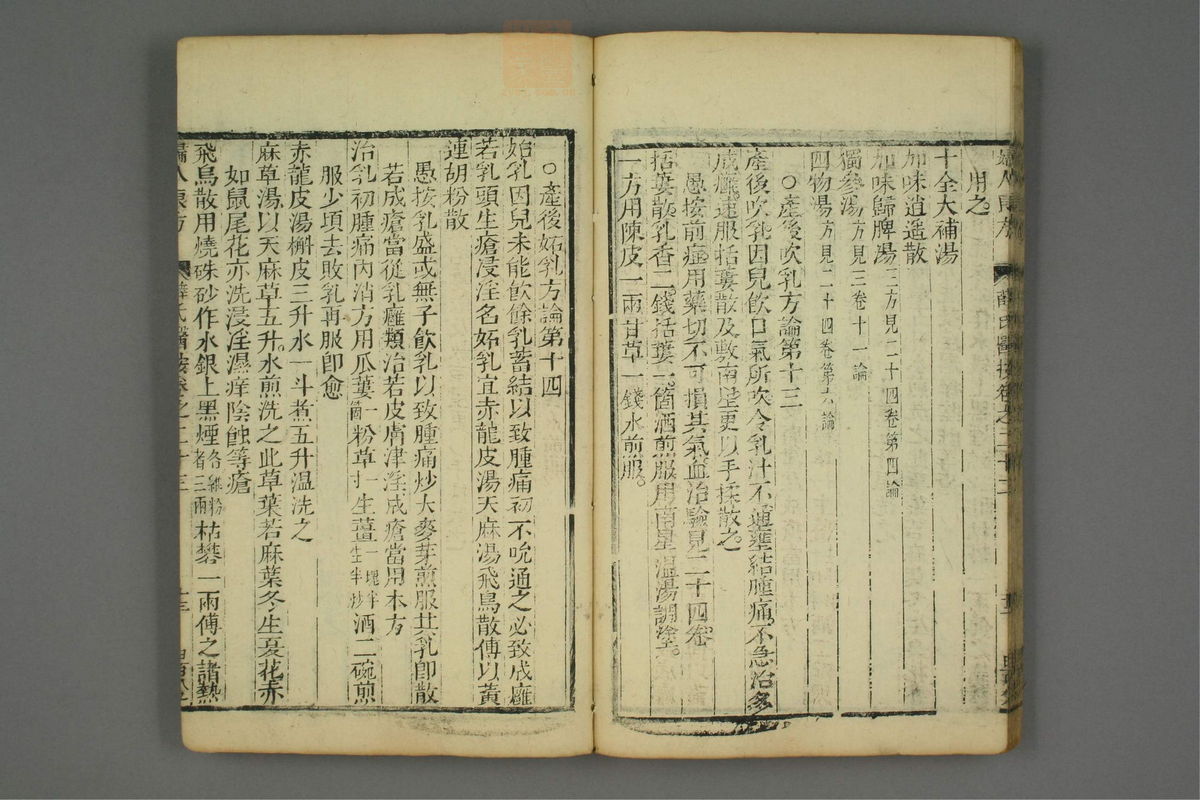 用之
十全大補湯
加味逍遙散
加味歸脾湯二方見二十四卷第四論
獨參湯方見三卷十一論
四物湯方見二十四卷第六論
○產後吹乳方論第十三
產後吹乳因兒飲口氣所吹令乳汁不通壅結腫痛不急治多
成癰速服括蔞散及敷南星更以手揉散之
愚按前症用藥切不可損其氣血治驗見二十四卷
括蔞散乳香二錢括蔞一箇酒煎服用南星温湯調塗
一方用陳皮一兩甘草一錢水煎服
○產後妬乳方論第十四
妬乳因兒未能飲餘乳蓄結以致腫痛初不吮通之必致成癰
若乳頭生瘡浸淫名妬乳宜赤龍皮湯天麻湯飛烏散傅以黃
連胡粉散
愚按乳盛或無子飲乳以致腫痛炒大麥芽煎服其乳卽散
若成瘡當從乳癰類治若皮膚津淫成瘡當用本方
治乳初腫痛內消方用瓜蔞一箇粉草寸生薑一塊半生半炒酒二碗煎
服少頃去敗乳再服卽愈
赤龍皮湯槲皮三升水一斗煮五升温洗之
麻草湯以天麻草五升水煎洗之此草葉若麻葉冬生夏花赤
如鼠尾花亦洗浸淫濕痒陰蝕等瘡
飛烏散用燒硃砂作水銀上黑煙各縩粉者三兩枯礬一兩傅之諸熱
婦人良方 薛氏醫按卷之二十三